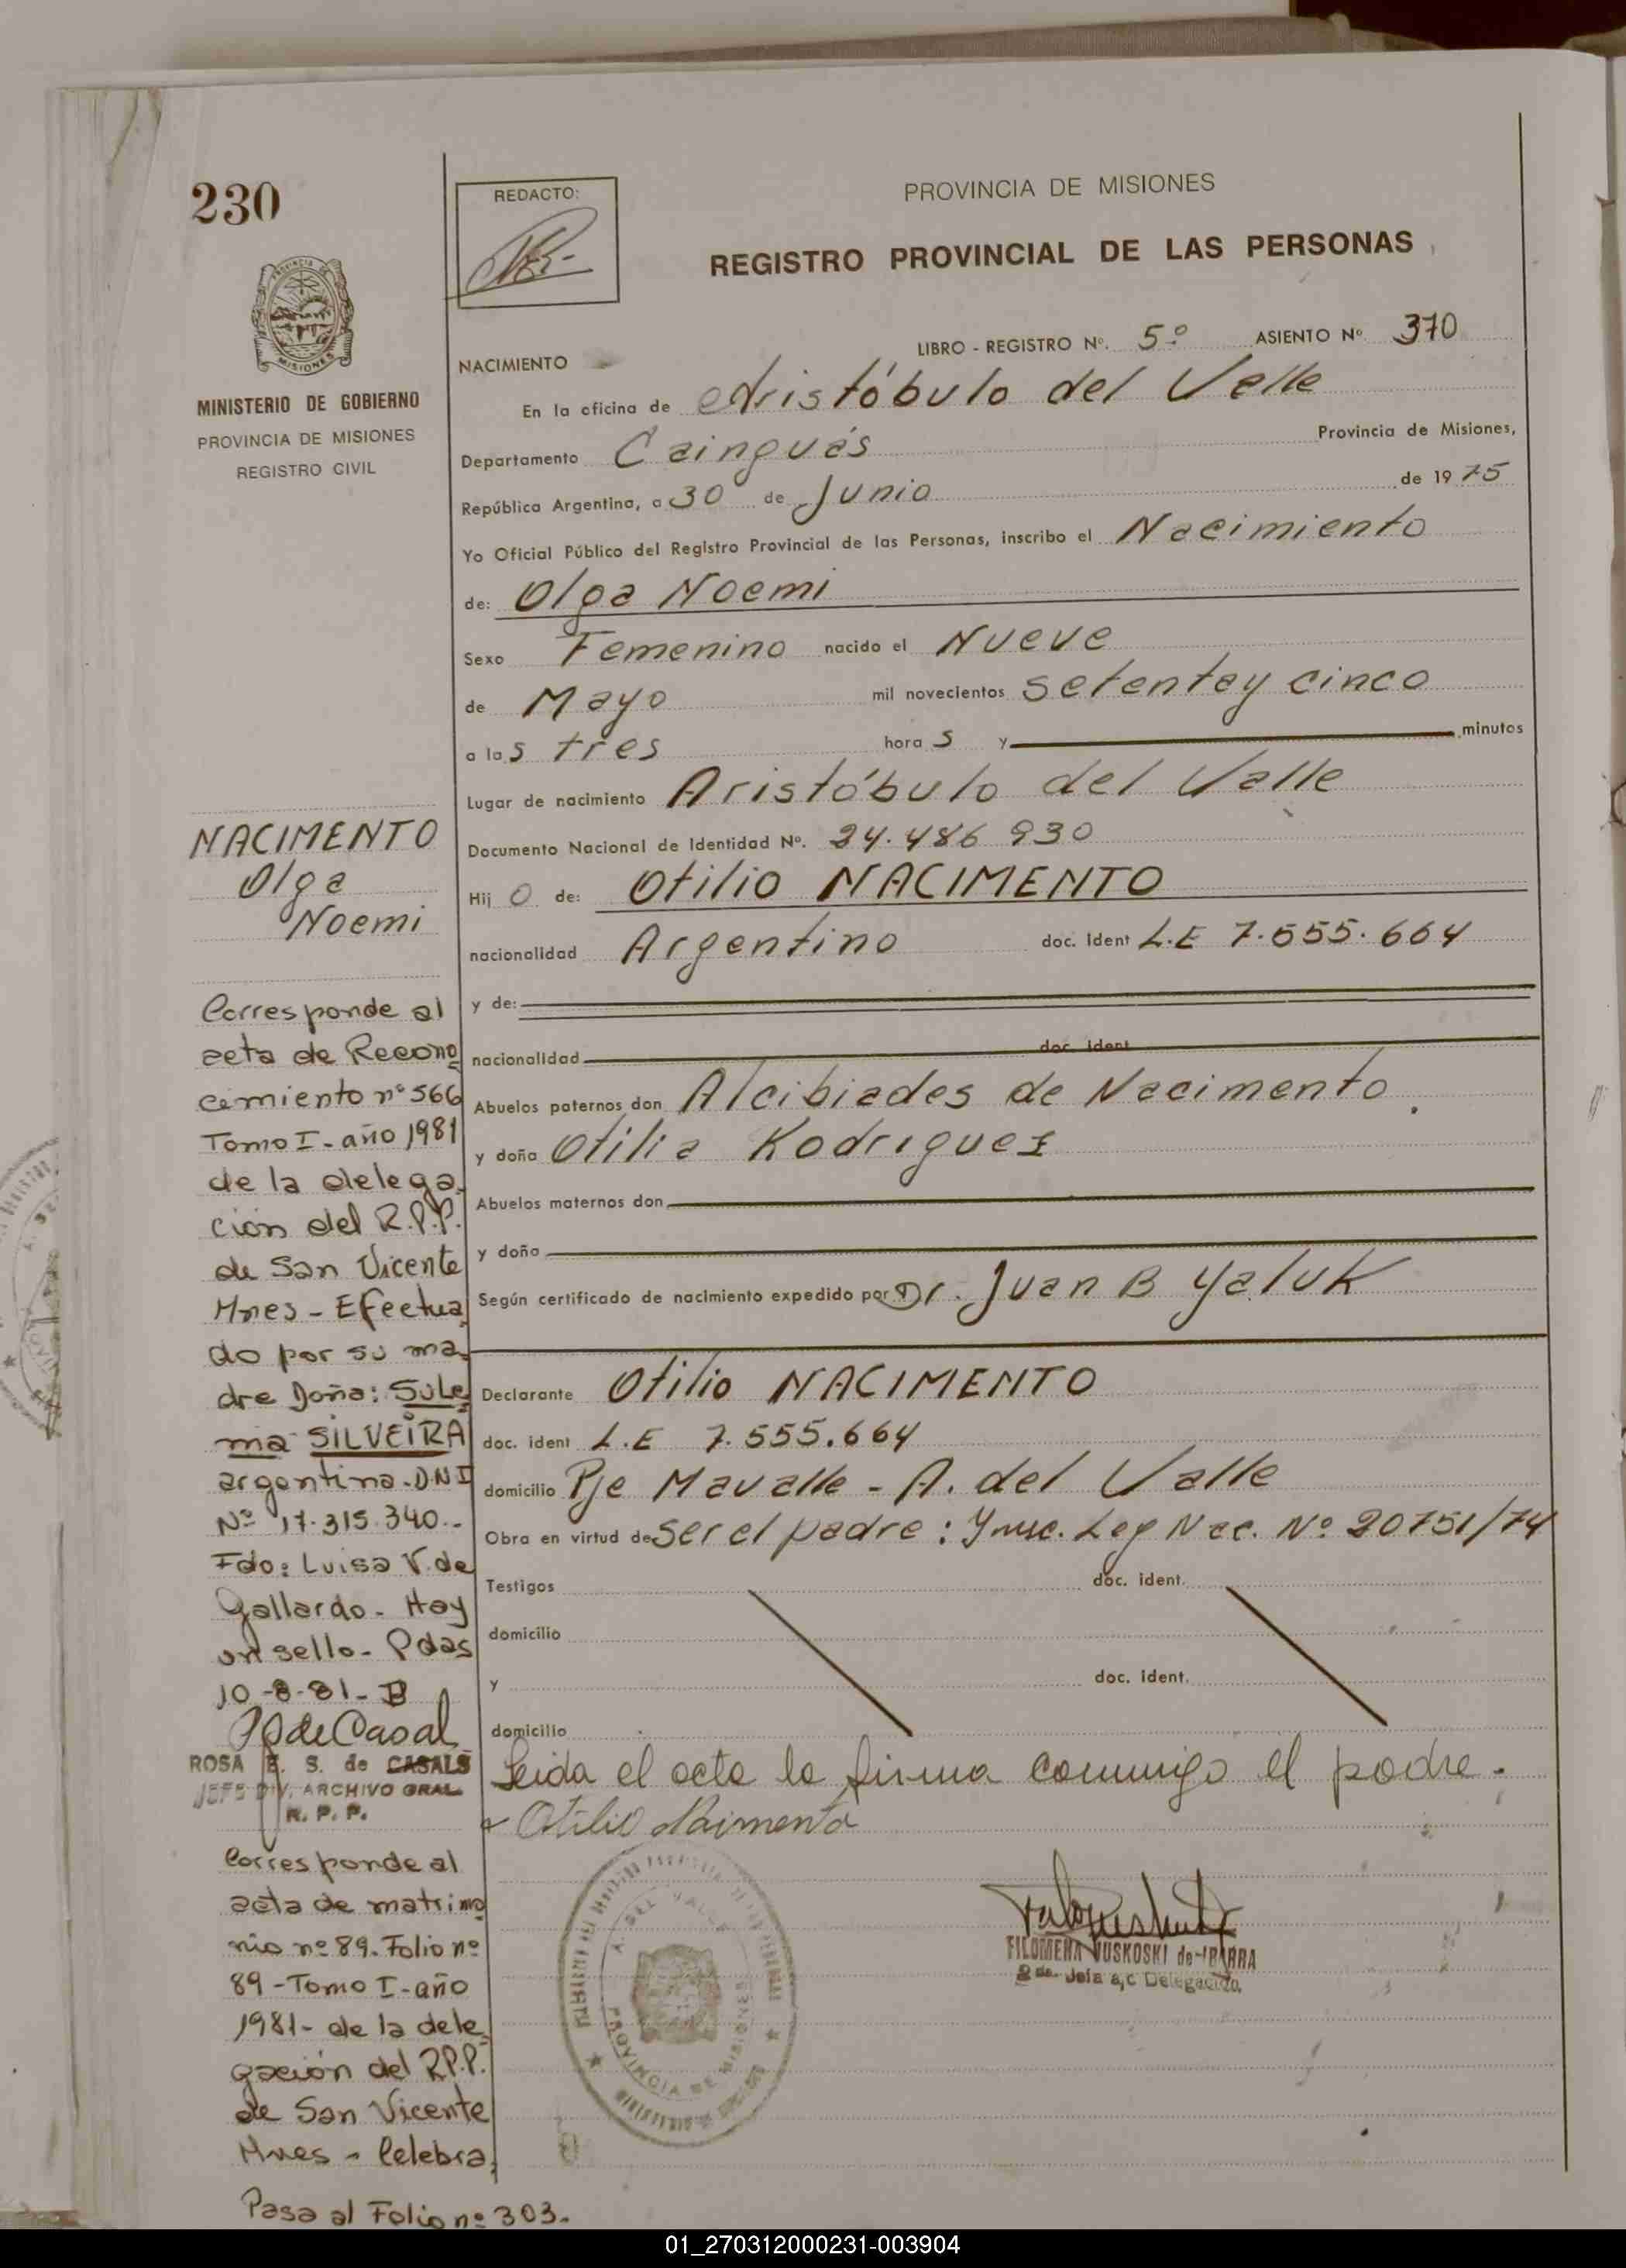 230
REDACTO:
PROVINCIA DE MISIONES
REGISTRO PROVINCIAL DE LAS PERSONAS
MINISTERIO DE GOBIERNO
PROVINCIA DE MISIONES
REGISTRO CIVIL
LIBRO - REGISTRO Nº. 5º ASIENTO Nº 370
NACIMIENTO
En la oficina de Aristóbulo del Valle
Departamento Cainguás Provincia de Misiones,
República Argentina, a 30 de Junio de 1975
Yo Oficial Público del Registro Provincial de las Personas, inscribo el Nacimiento
de: Olga Noemi
Sexo Femenino nacido el Nueve
de Mayo mil novecientos setentay cinco
a las tres horas y minutos
Lugar de nacimiento Aristóbulo del Valle
Documento Nacional de Identidad Nº. 24.486 930
Hijo de: Otilio NACIMENTO
nacionalidad Argentino doc. Ident L.E 7.555.664
y de:
nacionalidad doc. ident
Abuelos paternos don Alcibiades de Nacimento.
y doña Otilia Rodriguez
Abuelos maternos don
y doña
Según certificado de nacimiento expedido por Dr. Juan B Yaluk
Declarante Otilio NACIMENTO
doc. ident L.E 7.555.664
domicilio Pje Mavalle - A. del Valle
Obra en virtud de ser el padre: Ynsc. Ley Nac. Nº 20751/74
Testigos doc. ident.
domicilio
y doc. ident.
domicilio
Leida el acta la firma conmigo el padre.
Otilio Naimento
FILOMENA JUSKOSKI de IBARRA
2da. Jefa a/c Delegación
A. DEL VALLE
PROVINCIA DE MISIONES
NACIMENTO
Olga
Noemi
Corresponde al
acta de Recono
cimiento nº 566
Tomo I - año 1981
de la delega
ción del R.P.P.
de San Vicente
Mnes - Efectua
do por su ma
dre Doña: Sule
ma SILVEIRA
argentina. DNI
Nº 17.315.340.-
Fdo: Luisa V. de
Gallardo - Hay
un sello - Pdas
10-8-81- B
ROSA E. S. de CASALS
JEFE DIV. ARCHIVO GRAL
R. P. P.
Corresponde al
acta de matrimo
nio nº 89. Folio nº
89 - Tomo I - año
1981 - de la dele
gación del R.P.P.
de San Vicente
Mnes - Celebra
Pasa al Folio nº 303.
01_270312000231-003904